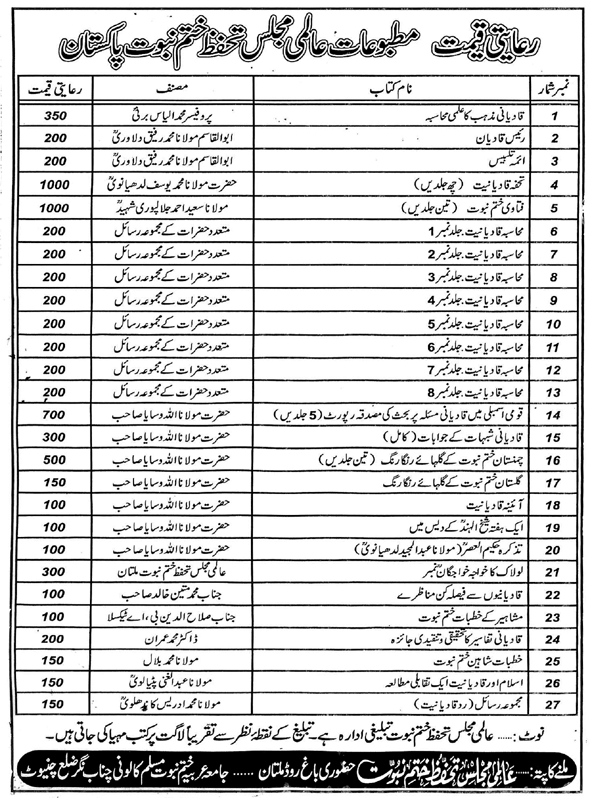 رعایتی قیمت مطبوعات عالمی مجلس تحفظ ختم نبوت پاکستان
نمبر شمار نام کتاب مصنف رعایتی قیمت
1 قادیانی مذہب کا علمی محاسبہ پروفیسر محمد الیاس برنیؒ 350
2 رئیس قادیان ابوالقاسم مولانا محمد رفیق دلاوریؒ 200
3 ائمہ تلبیس ابوالقاسم مولانا محمد رفیق دلاوریؒ 200
4 تحفہ قادیانیت (چھ جلدیں) حضرت مولانا محمد یوسف لدھیانویؒ 1000
5 فتاویٰ ختم نبوت (تین جلدیں) مولانا سعید احمد جلالپوری شہیدؒ 1000
6 محاسبہ قادیانیت جلد نمبر 1 متعدد حضرات کے مجموعہ رسائل 200
7 محاسبہ قادیانیت جلد نمبر 2 متعدد حضرات کے مجموعہ رسائل 200
8 محاسبہ قادیانیت جلد نمبر 3 متعدد حضرات کے مجموعہ رسائل 200
9 محاسبہ قادیانیت جلد نمبر 4 متعدد حضرات کے مجموعہ رسائل 200
10 محاسبہ قادیانیت جلد نمبر 5 متعدد حضرات کے مجموعہ رسائل 200
11 محاسبہ قادیانیت جلد نمبر 6 متعدد حضرات کے مجموعہ رسائل 200
12 محاسبہ قادیانیت جلد نمبر 7 متعدد حضرات کے مجموعہ رسائل 200
13 محاسبہ قادیانیت جلد نمبر 8 متعدد حضرات کے مجموعہ رسائل 200
14 قومی اسمبلی میں قادیانی مسئلہ پر بحث کی مصدقہ رپورٹ (5 جلدیں) حضرت مولانا اللہ وسایا صاحب 700
15 قادیانی شبہات کے جوابات (کامل) حضرت مولانا اللہ وسایا صاحب 300
16 چمنستان ختم نبوت کے گلہائے رنگا رنگ (تین جلدیں) حضرت مولانا اللہ وسایا صاحب 500
17 گلستان ختم نبوت کے گلہائے رنگا رنگ حضرت مولانا اللہ وسایا صاحب 150
18 آئینہ قادیانیت حضرت مولانا اللہ وسایا صاحب 100
19 ایک ہفتہ شیخ الہندؒ کے دیس میں حضرت مولانا اللہ وسایا صاحب 100
20 تذکرہ حکیم العصرؒ (مولانا عبدالمجید لدھیانویؒ) حضرت مولانا اللہ وسایا صاحب 100
21 لولاک کا خواجہ خواجگانؒ نمبر عالمی مجلس تحفظ ختم نبوت ملتان 300
22 قادیانیوں سے فیصلہ کن مناظرے جناب محمد متین خالد صاحب 100
23 مشاہیر کے خطبات ختم نبوت جناب صلاح الدین بی، اے ٹیکسلا 100
24 قادیانی تفاسیر کا تحقیقی و تنقیدی جائزہ ڈاکٹر محمد عمران 200
25 خطبات شاہین ختم نبوت مولانا محمد بلال 150
26 اسلام اور قادیانیت ایک تقابلی مطالعہ مولانا عبدالغنی پٹیالویؒ 150
27 مجموعہ رسائل (رد قادیانیت) مولانا محمد ادریس کاندھلویؒ 150
نوٹ: ...... عالمی مجلس تحفظ ختم نبوت تبلیغی ادارہ ہے۔ تبلیغ کے نقطۂ نظر سے تقریباً لاگت پر کتب مہیا کی جاتی ہیں۔
ملنے کا پتہ: عالمی مجلس تحفظ ختم نبوت حضوری باغ روڈ ملتان ...... جامعہ عربیہ ختم نبوت مسلم کالونی چناب نگر ضلع چنیوٹ